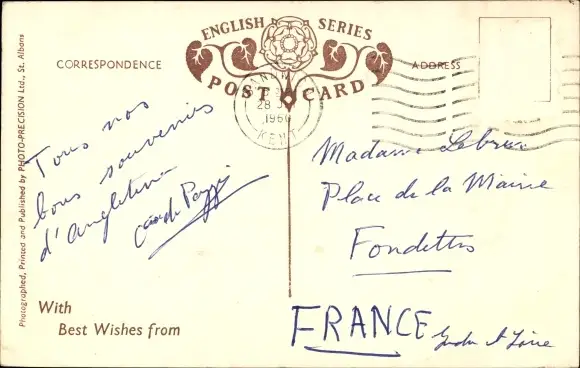 ENGLISH SERIES
POST CARD
CORRESPONDENCE
ADDRESS
28
1960
KENT
Tous nos
bons souvenirs
d'Angleterre
With
Best Wishes from
Madame Lebrun
Place de la Mairie
Fondettes
FRANCE Indre et Loire
Photographed, Printed and Published by PHOTO-PRECISION Ltd., St. Albans